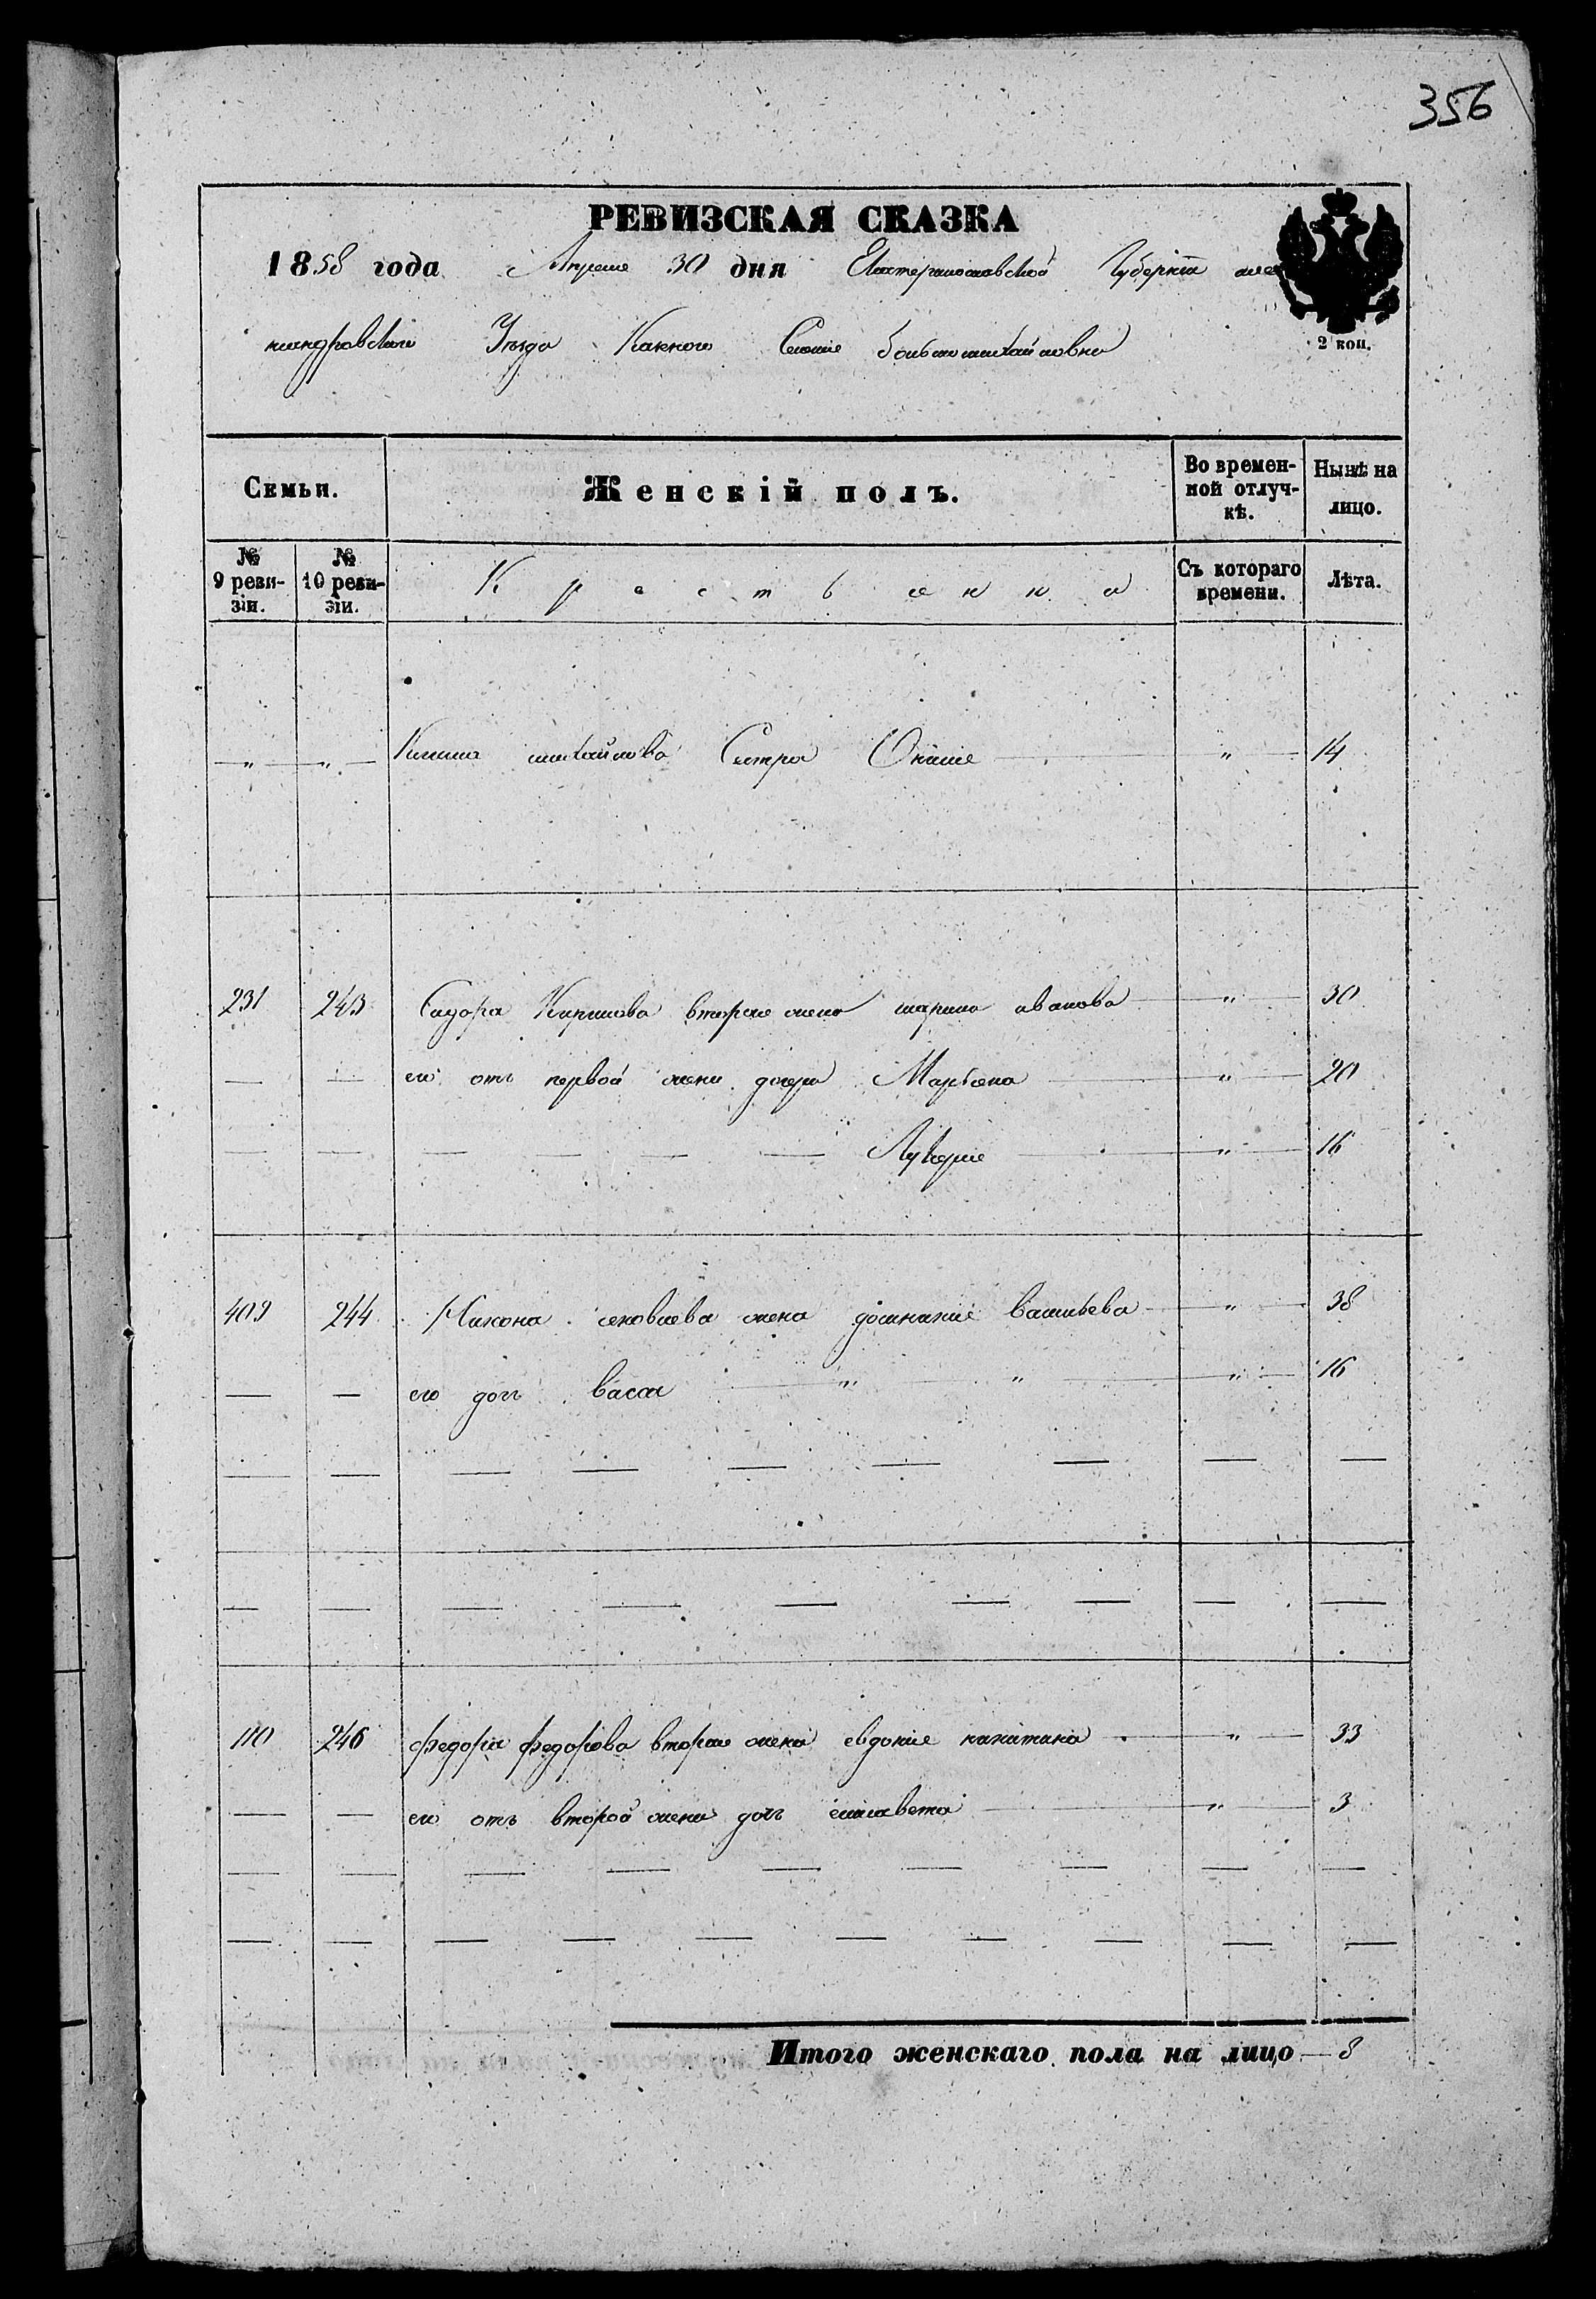 356
РЕВИЗСКАЯ СКАЗКА
1858 года Апреля 30 дня Екатеринославской Губернiи алек
сандровскаго Уезда Селенiе большомихайловки
2 коп.
Семьи.
Женскiй полъ.
Во времен-
ной отлуч-
кѣ.
Нынѣ на
лицо.
№
9 реви-
зiи.
№
10 реви-
зiи.
Крестьянка
Съ котораго
времени.
Лѣта.
" " михайлова Сестра " 14
231 243 Сидора Кирилова вторая жена марина иванова " 30
его отъ первой жены дочери Марфена " 20
Лукерiя " 16
409 244 жена васильева " 38
его дочь васса " " " 16
110 246 федора федорова вторая жена евдокiя никитина " 33
его отъ второй жены дочь елисавета " 3
Итого женскаго пола на лицо 8